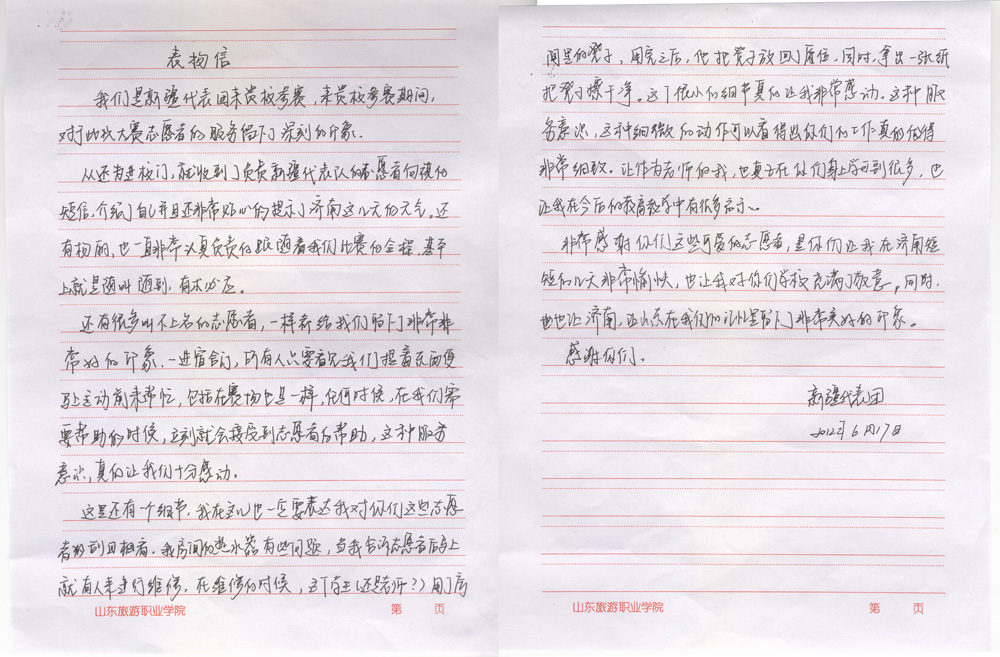 表扬信
我们是新疆代表团来贵校参赛，来贵校参赛期间，
对于此次大赛志愿者的服务留下深刻的印象。
从还未进校门，就收到了负责新疆代表队的志愿者何祺的
短信，介绍了自己并且还非常贴心的提示了济南这几天的天气。还
有杨丽，也一直非常认真负责的跟随着我们比赛的全程，基本
上就是随叫随到，有求必应。
还有很多叫不上名的志愿者，一样都给我们留下了非常非
常好的印象。一进宿舍门，所有人只要看见我们提着东西便
马上主动前来帮忙，包括在赛场也是一样，任何时候，在我们需
要帮助的时候，立刻就会接受到志愿者的帮助，这种服务
意识，真的让我们十分感动。
这里还有一个细节，我在这儿也一定要表达我对你们这些志愿
者的刮目相看。我房间的热水器有些问题，当我告诉志愿者后马上
就有人来进行维修。在维修的时候，这个学生（还是老师？）用了房
山东旅游职业学院 第 页
间里的凳子，用完之后，他把凳子放回了原位，同时，拿出一张纸
把凳子擦干净。这个很小的细节真的让我非常感动。这种服
务意识，这种细微的动作可以看得出你们的工作真的做得
非常细致。让作为老师的我，也真正在你们身上学习到很多，也
让我在今后的教育教学中有很多启示。
非常感谢你们这些可爱的志愿者，是你们让我在济南短
短的几天非常愉快，也让我对你们学校充满了敬意。同时，
也让济南，让山东在我们的记忆里留下了非常美好的印象。
感谢你们。
新疆代表团
2012年6月17日
山东旅游职业学院 第 页